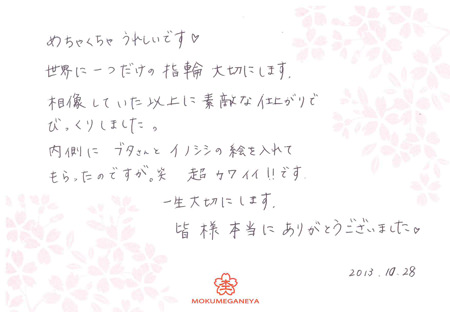 めちゃくちゃ うれしいです♡
世界に一つだけの 指輪 大切にします.
相像していた以上に 素敵な仕上がりで
びっくりしました。
内側に ブタさんと イノシシの絵を入れて
もらったのですが。笑 超 カワイイ!!です.
一生大切にします.
皆様 本当に ありがとうございました♡
2013.10.28
MOKUMEGANEYA